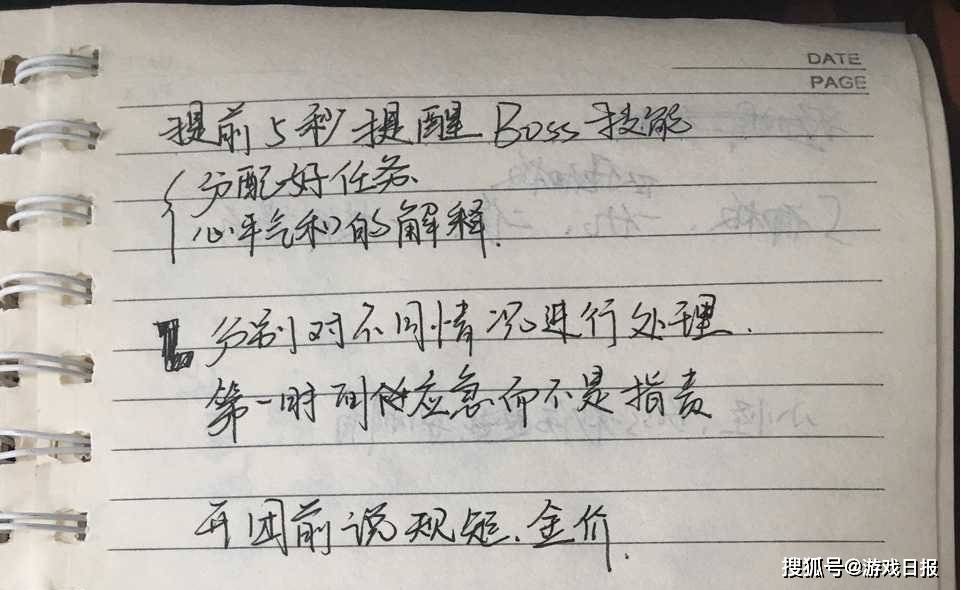 DATE
PAGE
提前5秒提醒Boss技能
分配好任务
心平气和的解释.
分别对不同情况进行处理.
第一时间做应急而不是指责
开团前说规矩、金价.
搜狐号@游戏日报